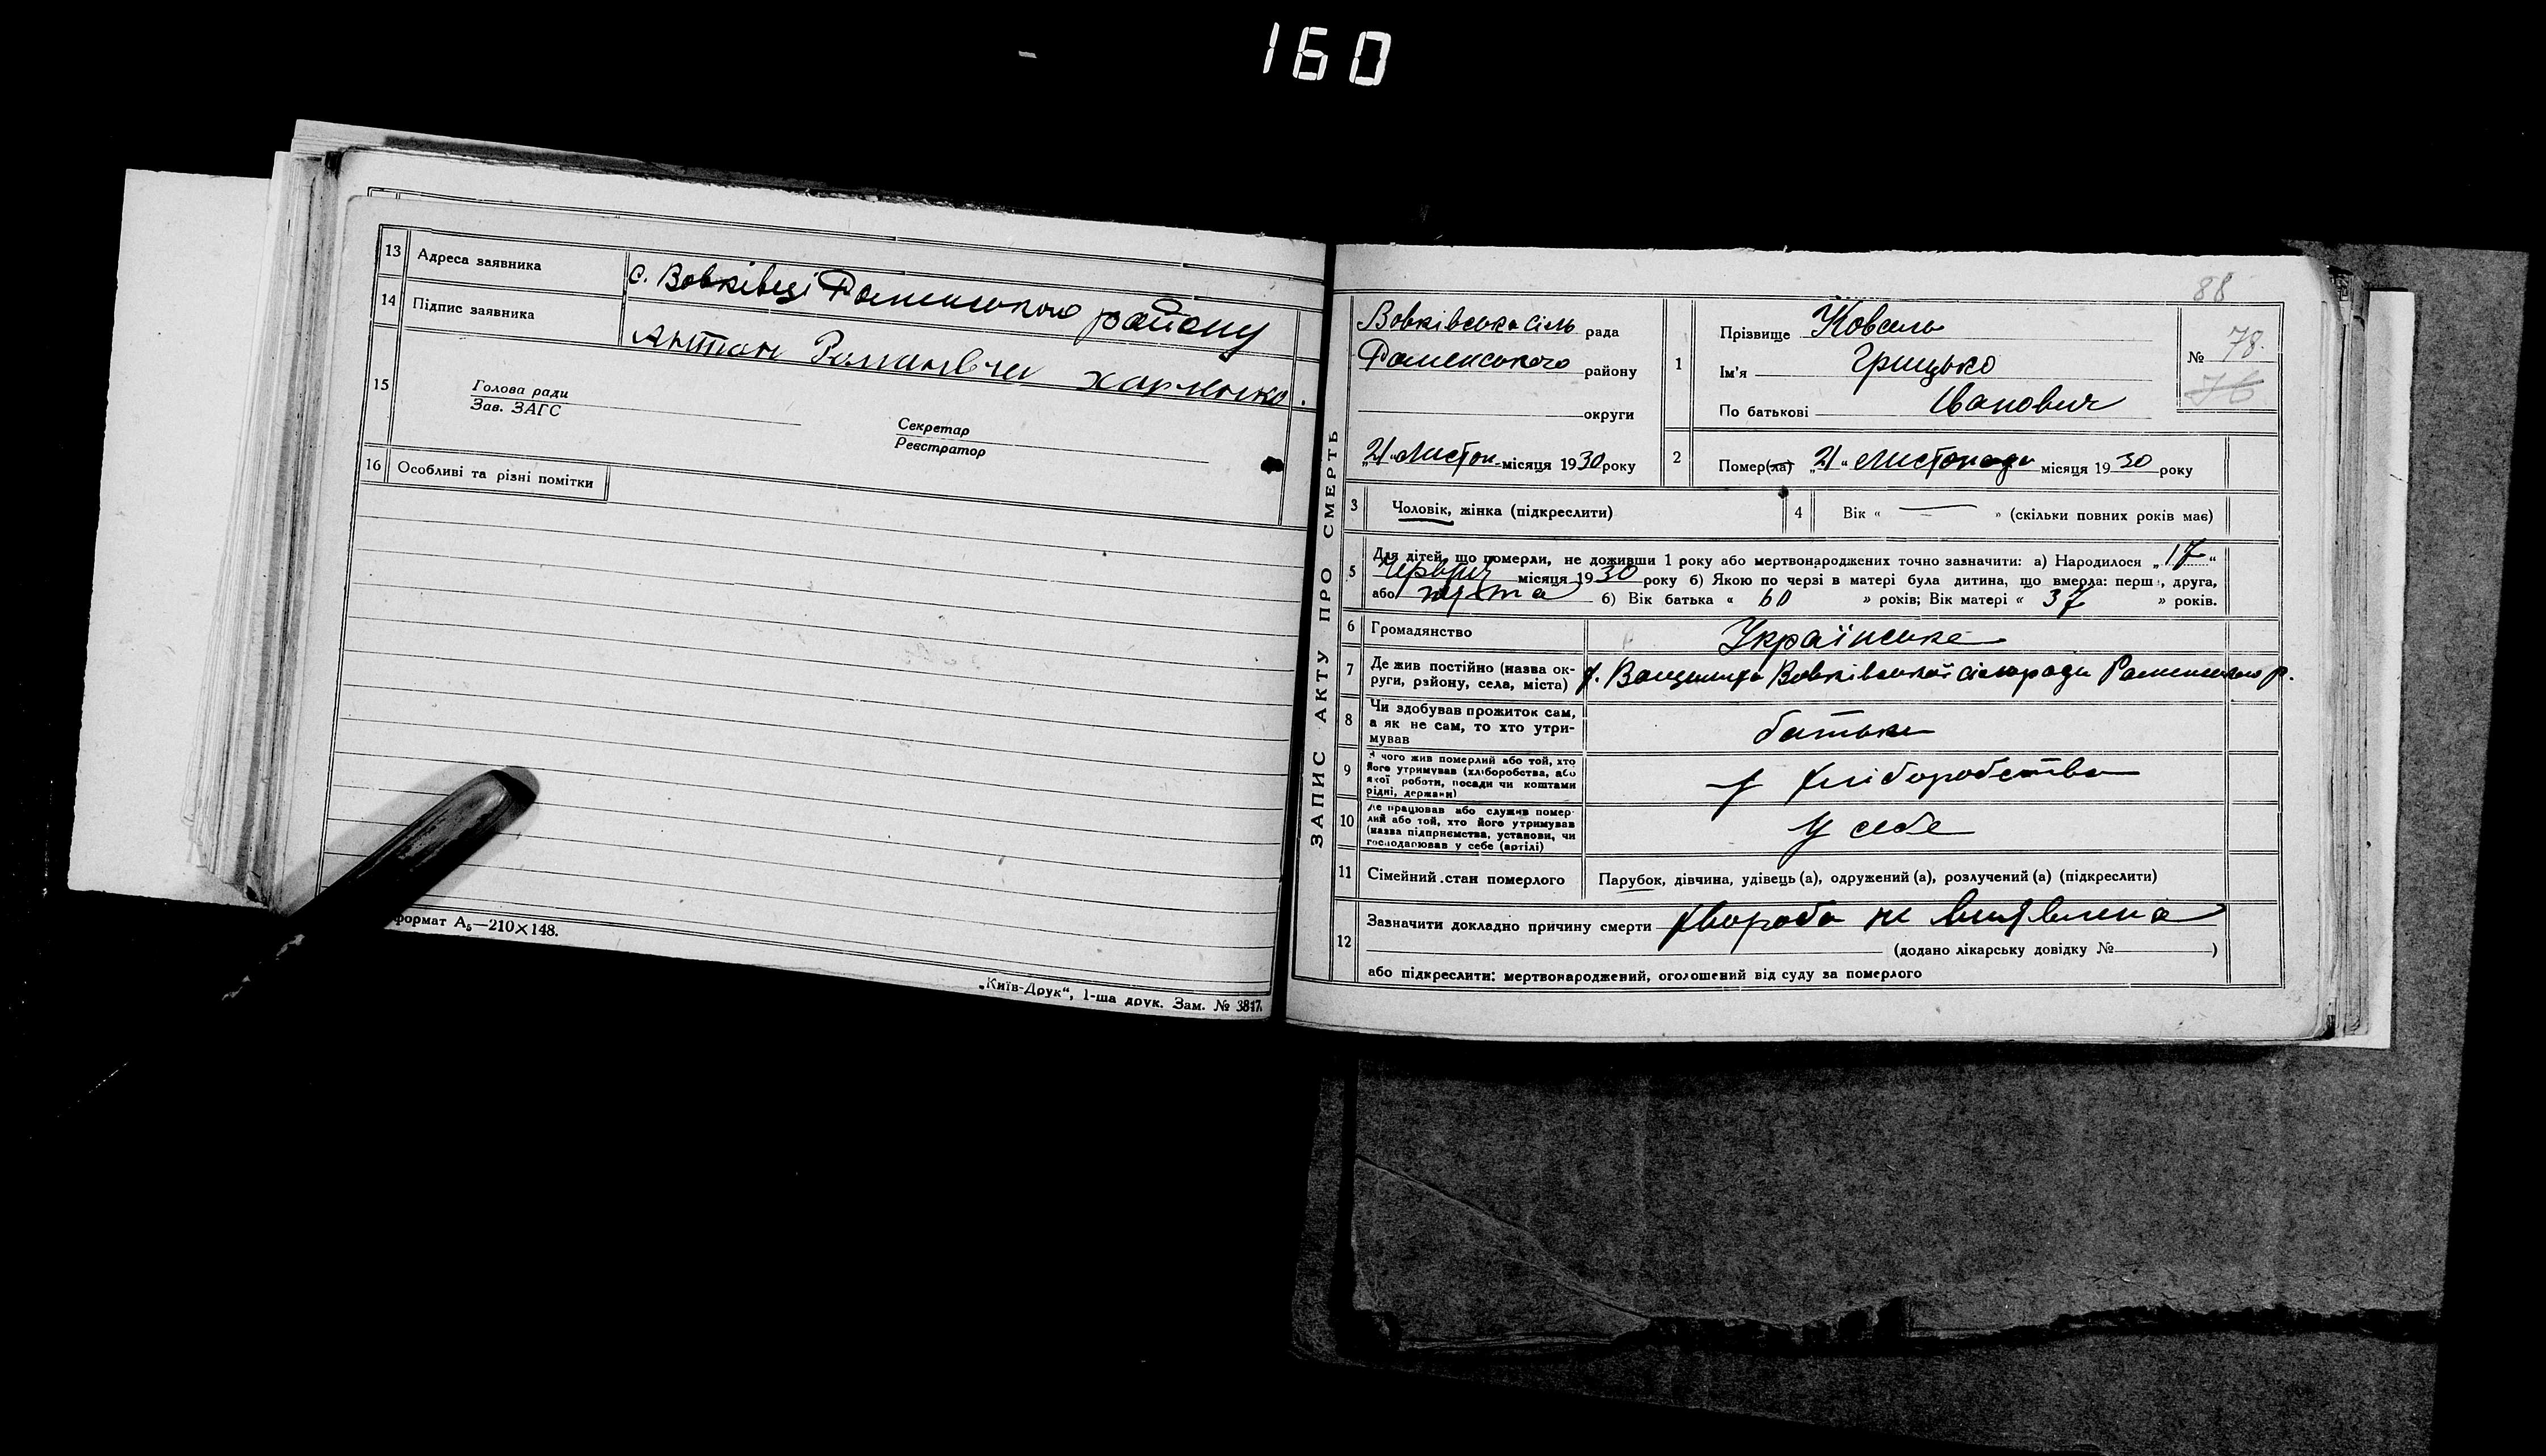 160
13 Адреса заявника с. Вовківці Роменського району
14 Підпис заявника Антон Романівич Харченко.
15 Голова ради
Зав. ЗАГС
Секретар
Реєстратор
16 Особливі та різні помітки
формат А₅—210×148.
„Київ-Друк“, 1-ша друк. Зам. № 3817.
ЗАПИС АКТУ ПРО СМЕРТЬ
88
Вовківська сіль рада
Роменського району
округи
„21“ Листоп. місяця 1930 року
1 Прізвище Коваль
Ім'я Грицько
По батькові Іванович
№ 78.
76
2 Помер(ла) „21“ Листопада місяця 1930 року
3 Чоловік, жінка (підкреслити)
4 Вік « — » (скільки повних років має)
5 Для дітей, що померли, не доживши 1 року або мертвонароджених точно зазначити: а) Народилося „17“
Червня місяця 1930 року б) Якою по черзі в матері була дитина, що вмерла: перша, друга,
або б) Вік батька « 60 » років; Вік матері « 37 » років.
6 Громадянство Українське
7 Де жив постійно (назва ок-
руги, району, села, міста) Вовківської сільради Роменського р.
8 Чи здобував прожиток сам,
а як не сам, то хто утри-
мував батьки
9 З чого жив померлий або той, хто
його утримував (хліборобства, або
якої роботи, посади чи коштами
рідні, держави) з хліборобства
10 Де працював або служив помер-
лий або той, хто його утримував
(назва підприємства, установи, чи
господарював у себе (артілі) У себе
11 Сімейний стан померлого Парубок, дівчина, удівець (а), одружений (а), розлучений (а) (підкреслити)
12 Зазначити докладно причину смерти хвороба не виявлена
(додано лікарську довідку № )
або підкреслити: мертвонароджений, оголошений від суду за померлого